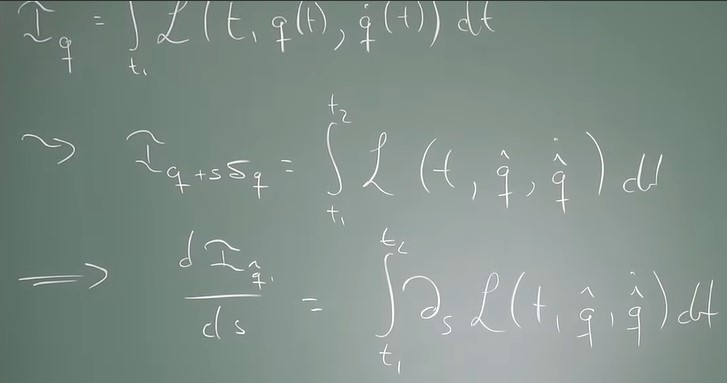 I_q = ∫_{t_1} L(t, q(t), q̇(t)) dt
⇝ I_{q+sδq} = ∫_{t_1}^{t_2} L(t, q̂, \dot{q̂}) dt
⟹ dI_{q̂}/ds = ∫_{t_1}^{t_2} ∂_s L(t, q̂, \dot{q̂}) dt